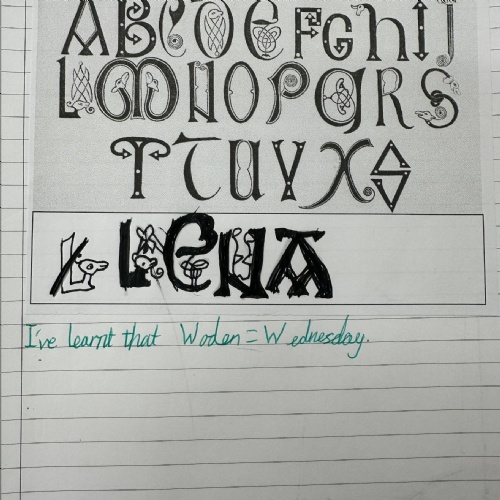 A B C D E F G h I J
L M N O P Q R S
T T U V X S
L LENA
I've learnt that Woden = Wednesday.